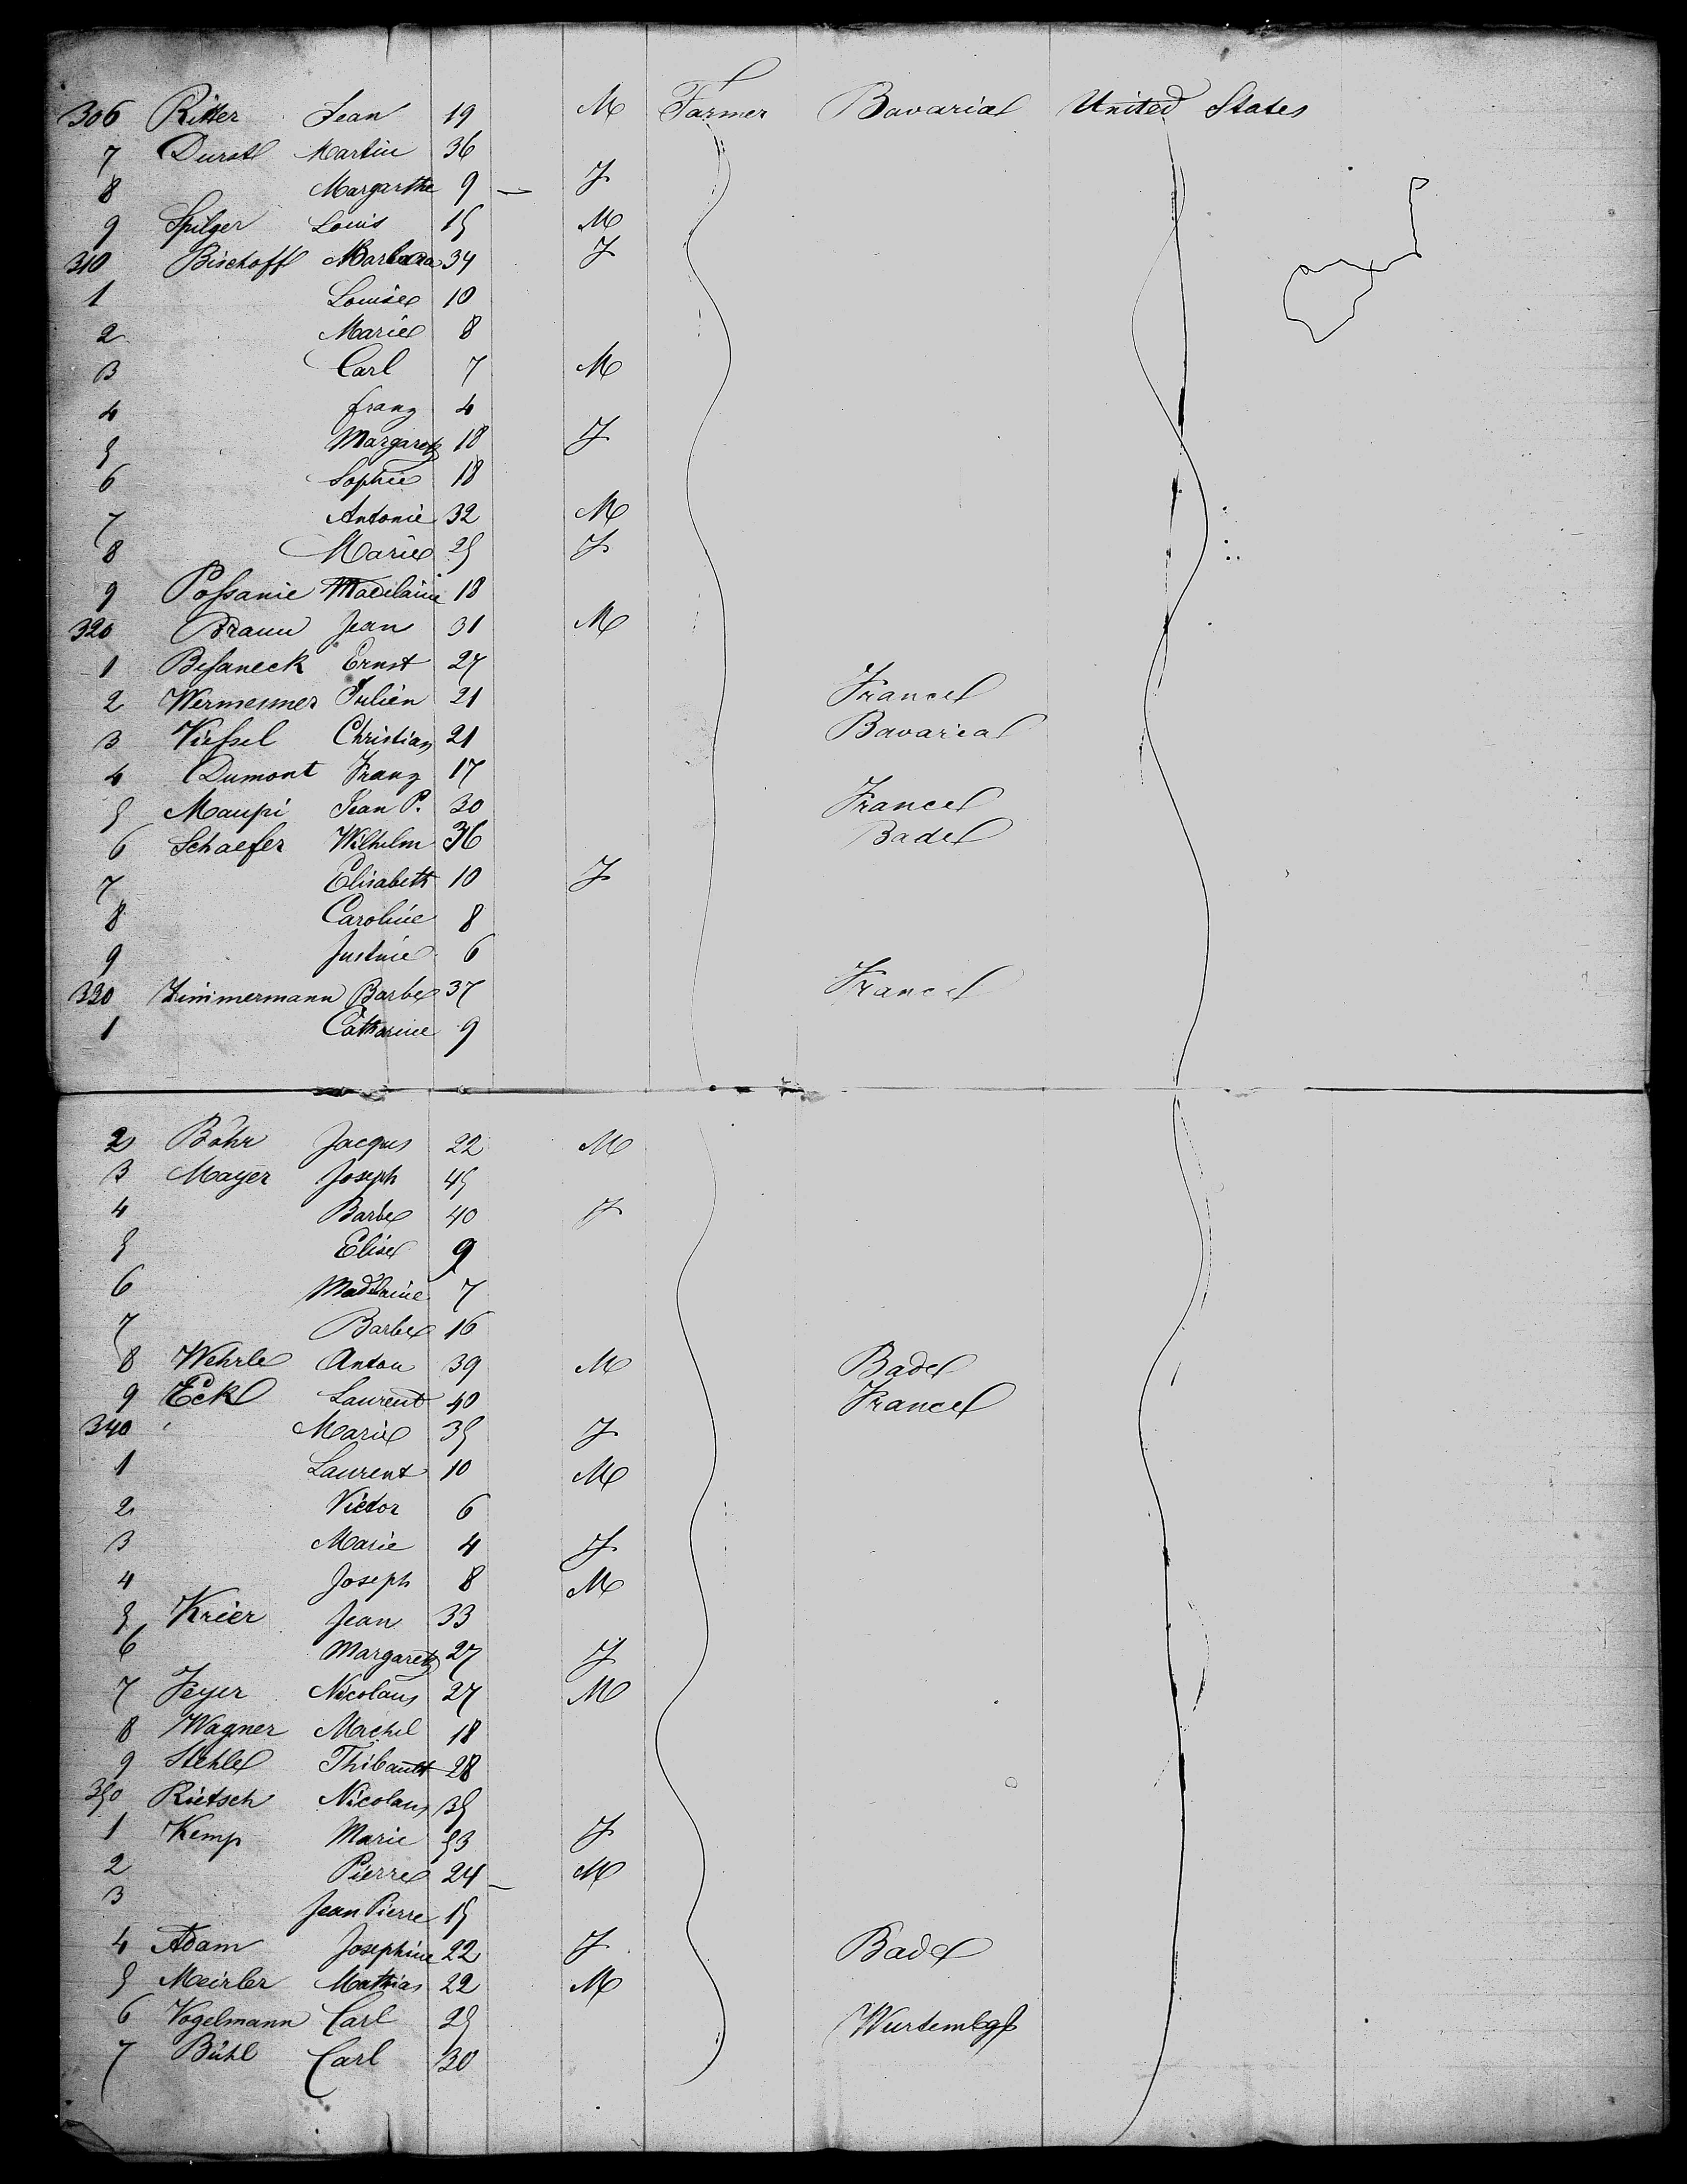 306 Ritter Jean 19 M Farmer Bavaria United States
7 Durst Martin 36
8 Margarthe 9 — F
9 Spilger Louis 15 M
310 Bischoff Barbara 34 F
1 Louise 10
2 Marie 8
3 Carl 7 M
4 franz 4
5 Margareth 18 F
6 Sophie 18
7 Antonie 32 M
8 Marie 25 F
9 Possanie Madelaine 18
320 Braun Jean 31 M
1 Besaneck Ernst 27
2 Wermesmer Julien 21 France
3 Viessel Christian 21 Bavaria
4 Dumont Franz 17
5 Maupi Jean P. 30 France
6 Schaefer Wilhelm 36 Bade
7 Elisabeth 10 F
8 Caroline 8
9 Justine 6
330 Zimmermann Barbe 37 France
1 Catharine 9
2 Böhr Jacques 22 M
3 Mayer Joseph 45
4 Barbe 40 F
5 Elise 9
6 Madelaine 7
7 Barbe 16
8 Wehrle Anton 39 M Bade
9 Eck Laurent 40 France
340 Marie 35 F
1 Laurent 10 M
2 Victor 6
3 Marie 4 F
4 Joseph 8 M
5 Krier Jean 33
6 Margareth 27 F
7 Feyer Nicolaus 27 M
8 Wagner Michel 18
9 Stehle Thibault 28
350 Rietsch Nicolaus 35
1 Kemp Marie 53 F
2 Pierre 24 — M
3 Jean Pierre 15
4 Adam Josephine 22 F Bade
5 Meirler Mathias 22 M
6 Vogelmann Carl 25 Wurtembg
7 Bühl Carl 30